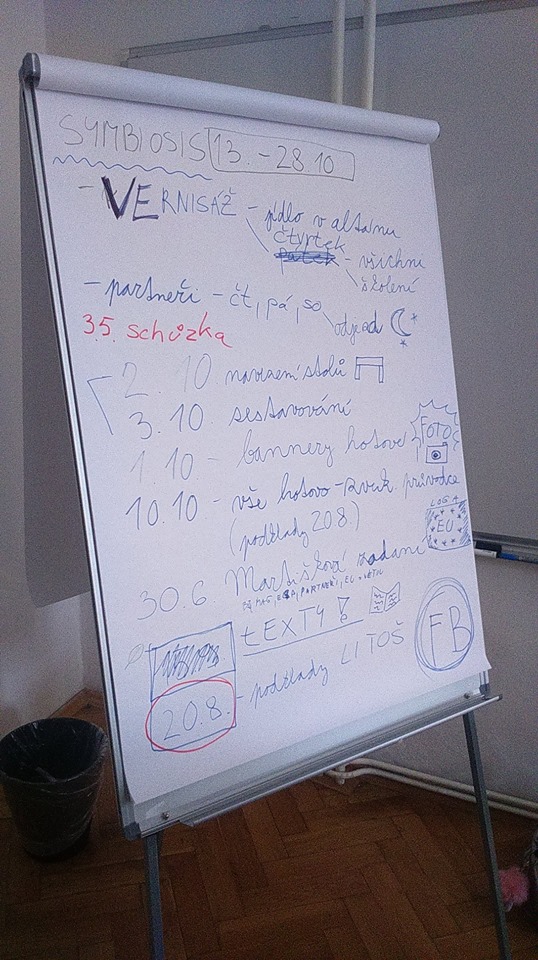 SYMBIOSIS 13. - 28.10
- VERNISÁŽ - jídlo v altánu
čtvrtek
pátek - všichni
školení
- partneři - čt, pá, so
odjezd
3.5. schůzka
2. 10 navezení stolů
3.10. sestavování
1.10 - bannery hotové
FOTO
10.10 - vše hotovo - průvodce
(podklady 20.8.)
LOGA
EU
30.6 zadání
PARTNEŘI, EU
tEXTY!
20.8. - podklady LITOŠ
FB